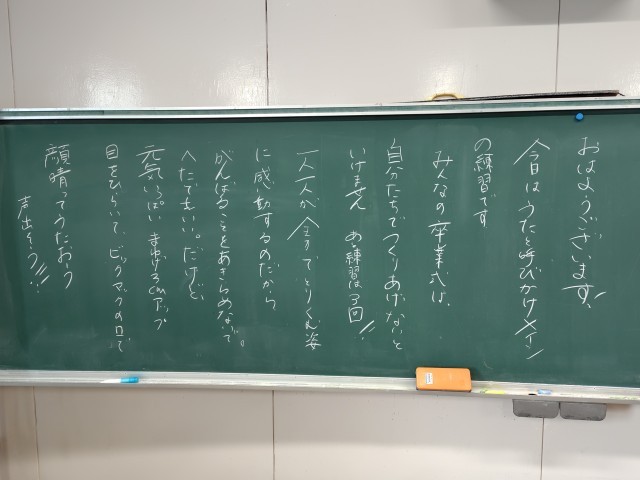 おはようございます!
今日はうたと呼びかけメイン
の練習です
みんなの卒業式は、
自分たちでつくりあげないと
いけません あと練習は3回!!
一人一人が全力でとりくむ姿
に感動するのだから
がんばることをあきらめないで。
へたでもいい。だけど、
元気いっぱい まゆげ3cmアップ
目をひらいて、ビックマックの口で
顔晴ってうたおーう
声出そう!!!